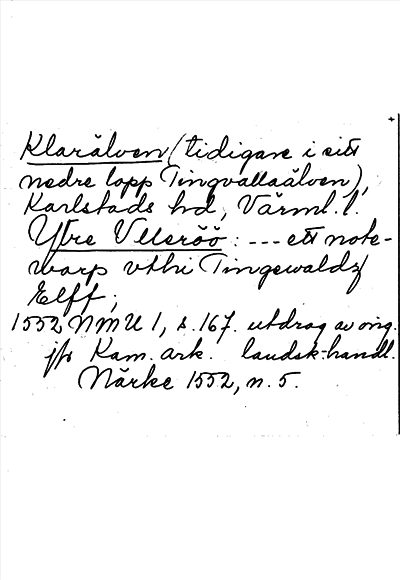 Klarälven (tidigare i sitt
nedre lopp Tingvallaälven),
Karlstads hd, Värml. l.
Yttre Ulleröö: --- ett note-
warp vthi Tingewaldz
Elff;
1552 NMU 1, s. 167. utdrag av orig.
jfr Kam. ark. landsk.handl.
Närke 1552, n. 5.